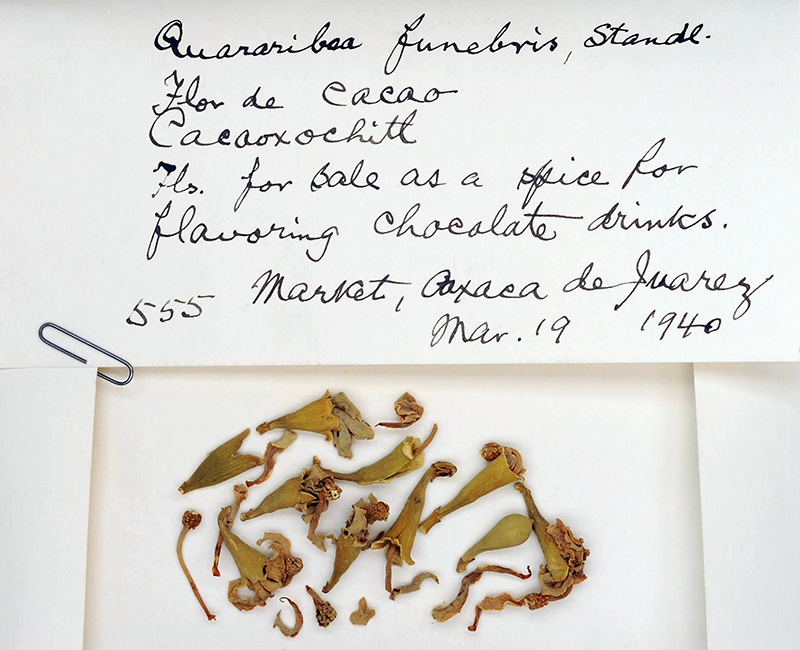 Quararibea funebris, Standl.
Flor de cacao
Cacaoxochitl
Fls. for sale as a spice for
flavoring chocolate drinks.
555 Market, Oaxaca de Juarez
Mar. 19 1940